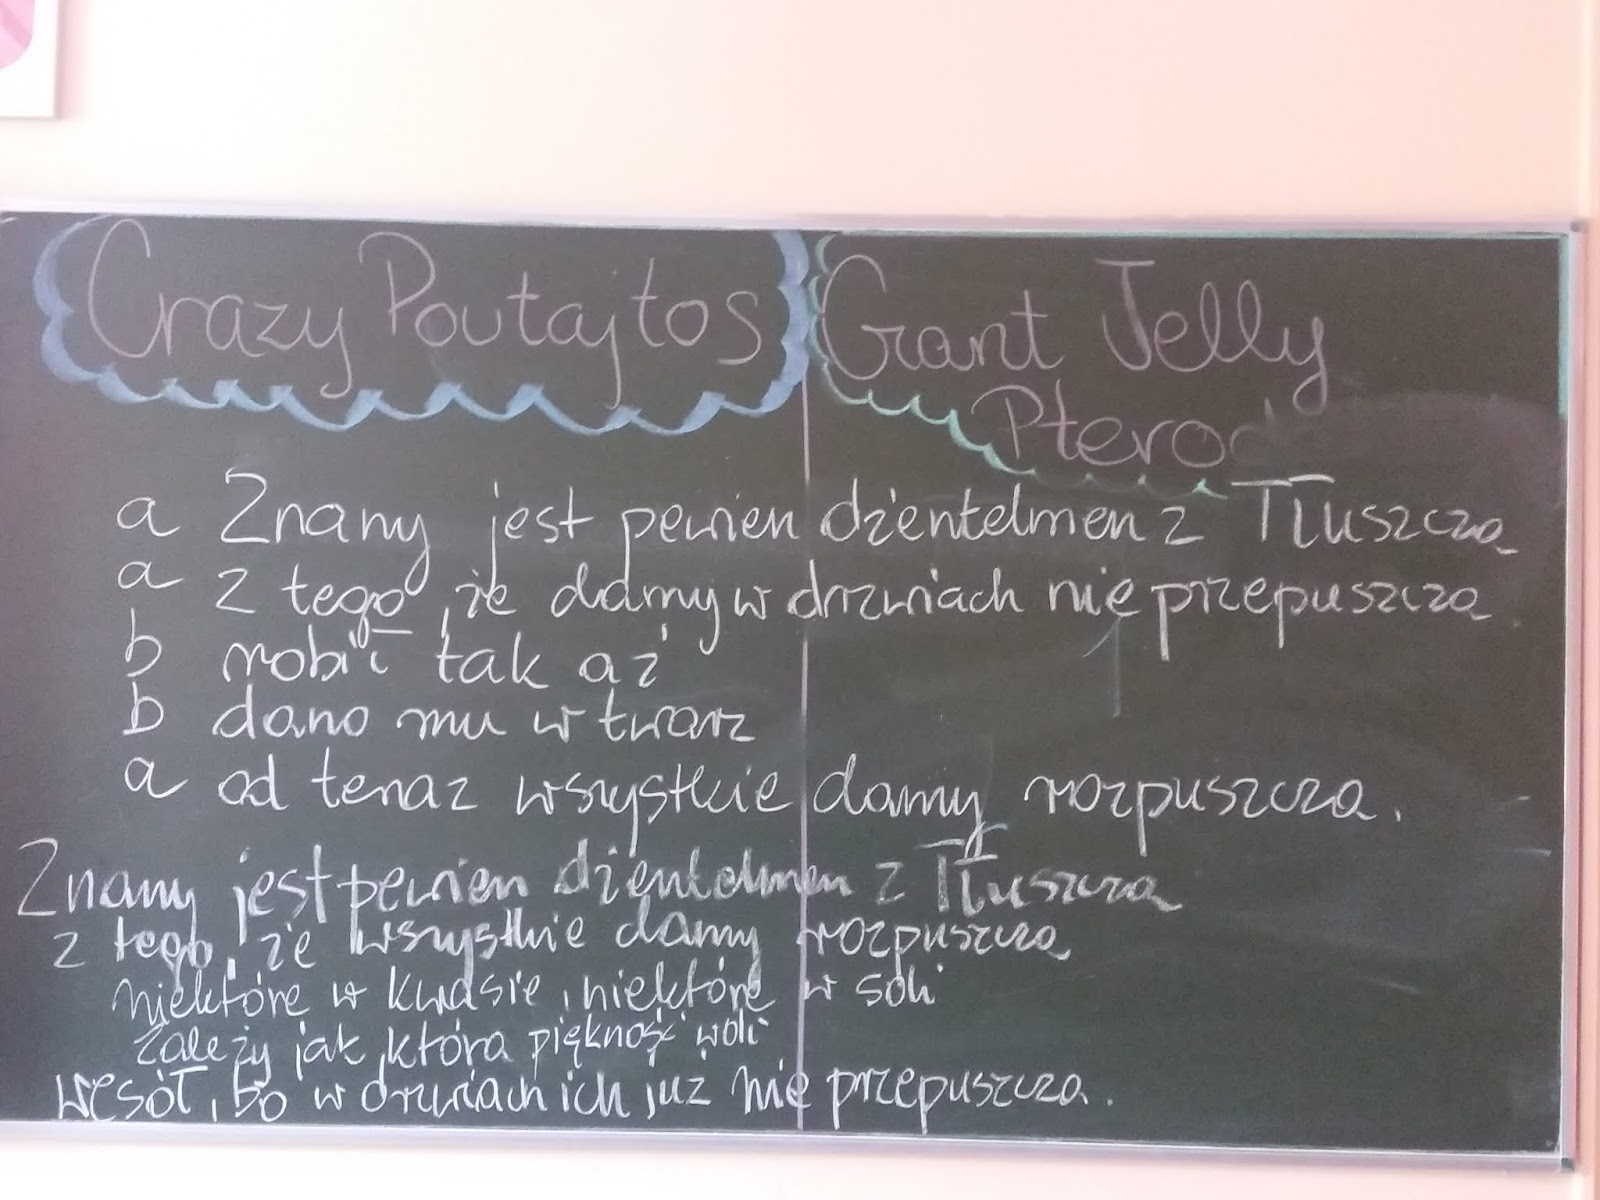 Crazy Poutajtos
Grant Jelly
Pterod
a Znany jest pewien dżentelmen z Tłuszcza
a z tego, że damy w drzwiach nie przepuszcza
b robił tak aż
b dano mu w twarz
a od teraz wszystkie damy rozpuszcza.
Znany jest pewien dżentelmen z Tłuszcza
z tego, że wszystkie damy rozpuszcza
niektóre w kwasie, niektóre w soli
zależy jak która piękność woli
wesół, bo w drzwiach ich już nie przepuszcza.